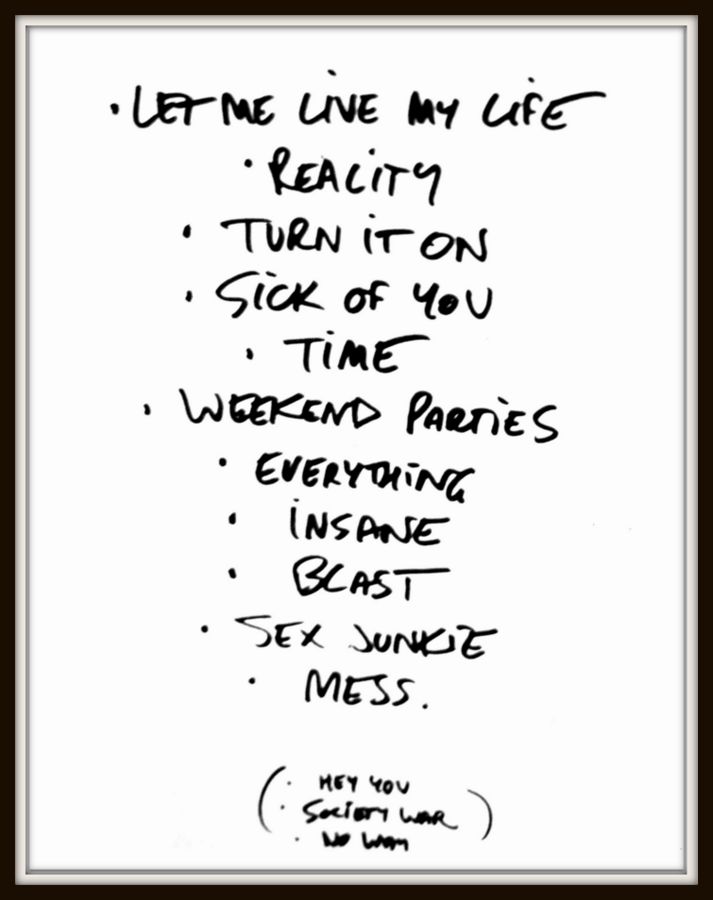 · LET ME LIVE MY LIFE
· REALITY
· TURN IT ON
· SICK OF YOU
· TIME
· WEEKEND PARTIES
· EVERYTHING
· INSANE
· BLAST
· SEX JUNKIE
· MESS.
( · HEY YOU
· SOCIETY WAR )
· NO WAY